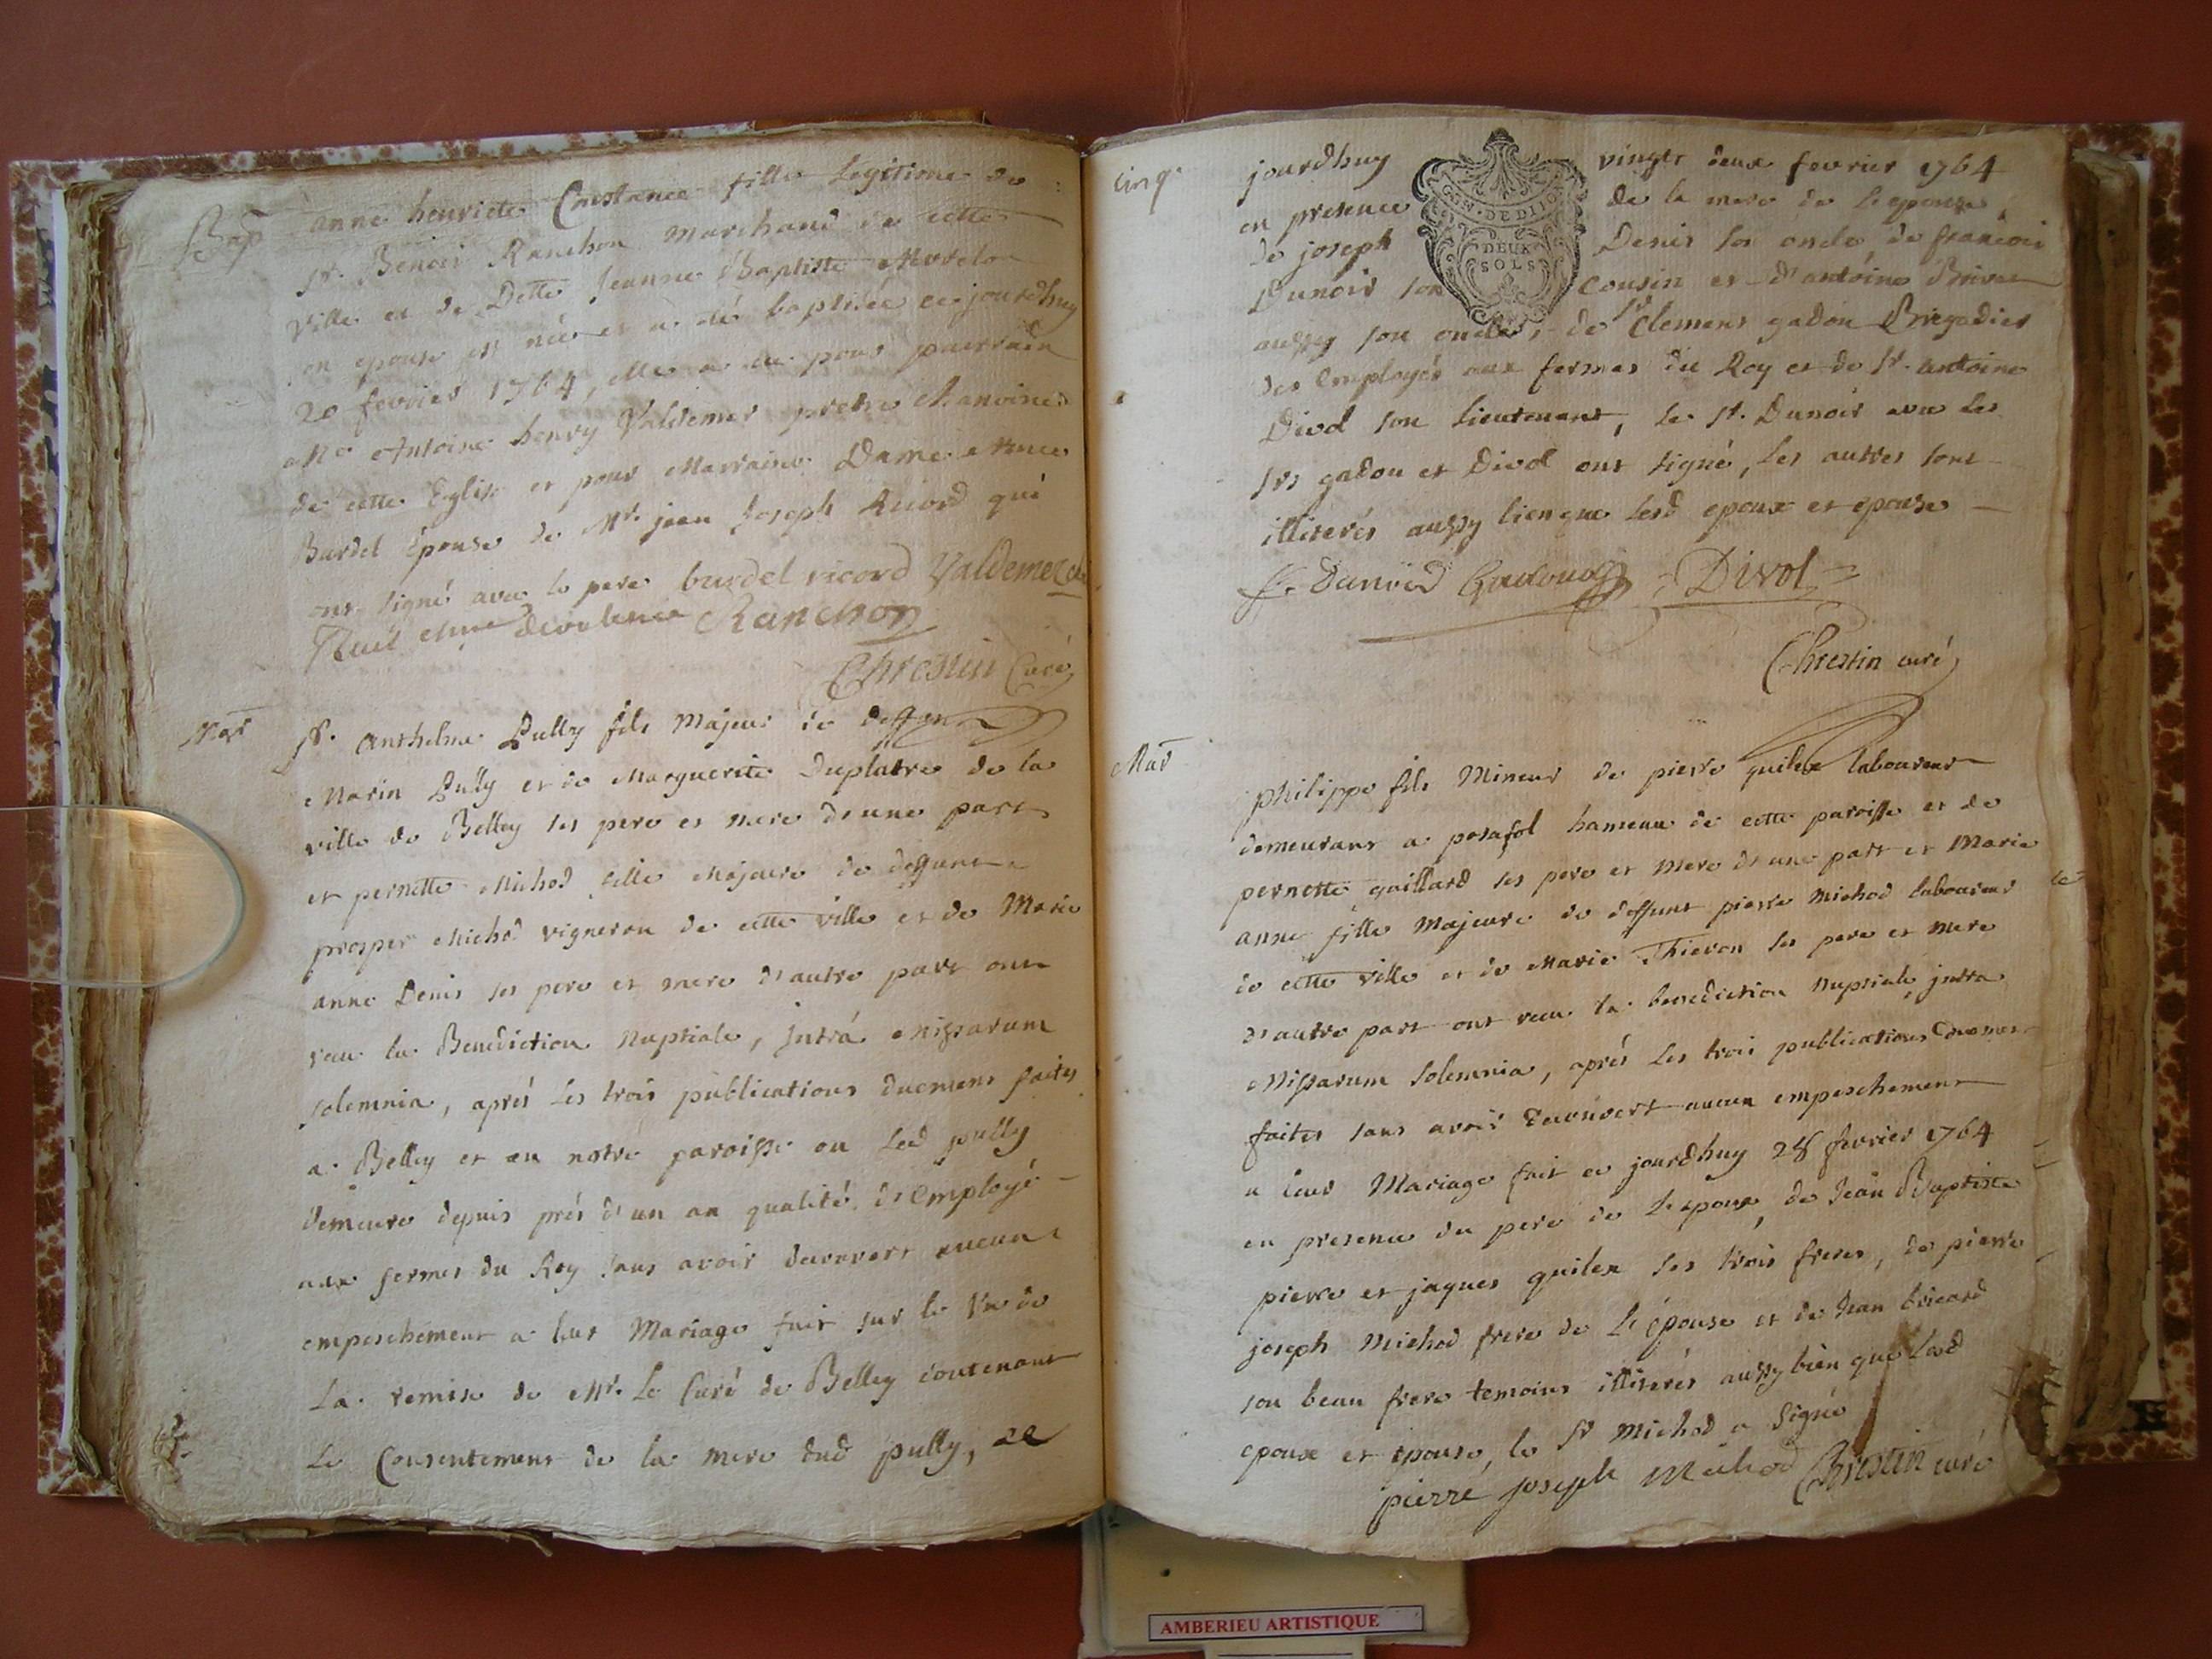 Bap anne henriete Constance fille Legitime de
sr. Benoit Ranchon marchand de cette
ville et de Dette Jeanne Baptiste
son epouse est née et a été baptisée ce jourdhuy
20 fevrier 1764, elle a eu pour parrain
Mre Antoine henry Valdemer pretre chanoine
de cette Eglise et pour Marraine Dame
Burdel épouse de Mr. jean Joseph Ricord qui
ont signé avec le pere burdel ricord Valdemer
Ranchon
Chrestin Curé
Mar sr. anthelme Pully fils Majeur de deffunt
Marin Pully et de Marguerite Duplatre de la
ville de Belley ses pere et mere d'une part
et pernette Michod fille Majeure de deffunt
prosper Michod vigneron de cette ville et de Marie
anne Denis ses pere et mere d'autre part ont
recu la Benediction Nuptiale, jntrá missarum
solemnia, aprés les trois publications duement faites
a Belley et en notre paroisse ou led pully
demeure depuis prés d'un an qualité d'Employé
aux fermes du Roy sans avoir decouvert aucun
empeschement a leur Mariage fait sur le Vu de
La remise de Mr. Le Curé de Belley contenant
Le Consentement de la mere dud pully, ce
cinq. jourdhuy vingt deux fevrier 1764
GEN. DE DIJON
DEUX
SOLS
en presence de la mere de L'epouse,
de joseph Denis son oncle de francois
Dunoir son cousin et d'antoine
aussy son oncle, de sr Clement gadou Brigadier
des Employés aux fermes du Roy et de sr. antoine
Divol son Lieutenant, le sr. Dunoir avec les
srs gadou et Divol ont signé, les autres sont
illiterés aussy bien que lesd epoux et epouse
f. Dunoir Divol
Chrestin curé
Mar philippe fils Mineur de pierre quilex laboureur
demeurant a posafol hameau de cette paroisse et de
pernette guillard ses pere et mere d'une part et Marie
anne fille Majeure de deffunt pierre Michod laboureur
de cette ville et de Marie Thievon ses pere et mere
d'autre part ont recu la benediction Nuptiale, jntra
Missarum Solemnia, aprés les trois publications duement
faites sans avoir decouvert aucun empeschement
a leur Mariage fait ce jourdhuy 28 fevrier 1764
en presence du pere de L'epoux, de Jean Baptiste
pierre et jaques quilex ses trois freres, de pierre
joseph Michod frere de L'épouse et de Jean bricard
son beau frere temoins illiterés aussy bien que lesd
epoux et epouse, le sr Michod a signé
pierre joseph Michod Chrestin curé
AMBERIEU ARTISTIQUE